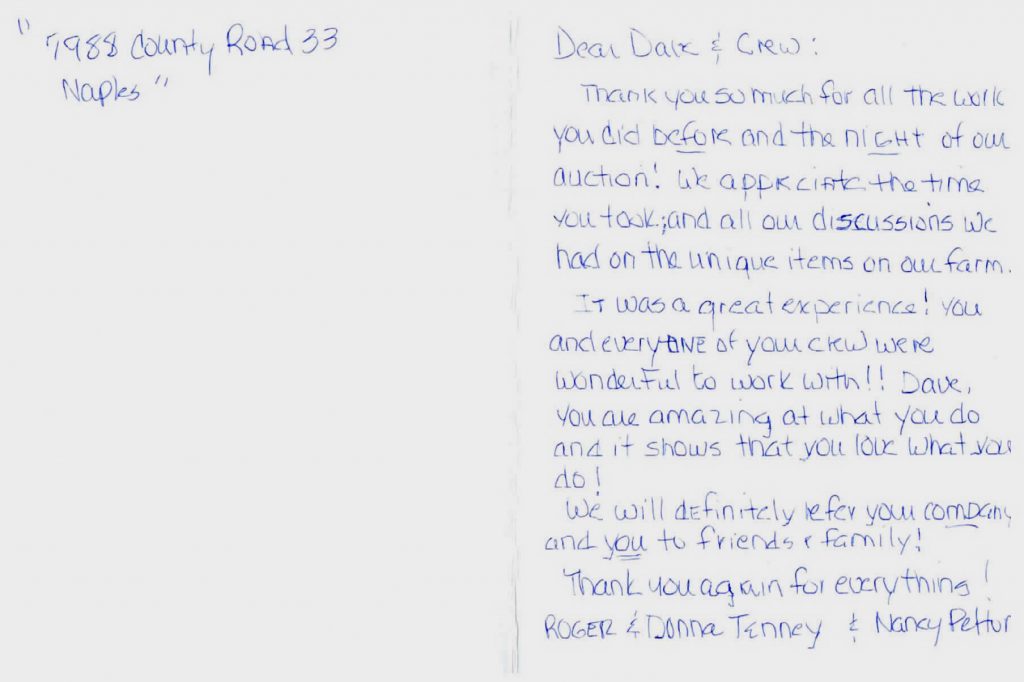 "7988 County Road 33
Naples"
Dear Dave & Crew:
Thank you so much for all the work
you did before and the night of our
auction! We appreciate the time
you took; and all our discussions we
had on the unique items on our farm.
It was a great experience! You
and everyone of your crew were
wonderful to work with!! Dave,
you are amazing at what you do
and it shows that you love what you
do!
We will definitely refer your company
and you to friends & family!
Thank you again for everything!
Roger & Donna Tenney & Nancy